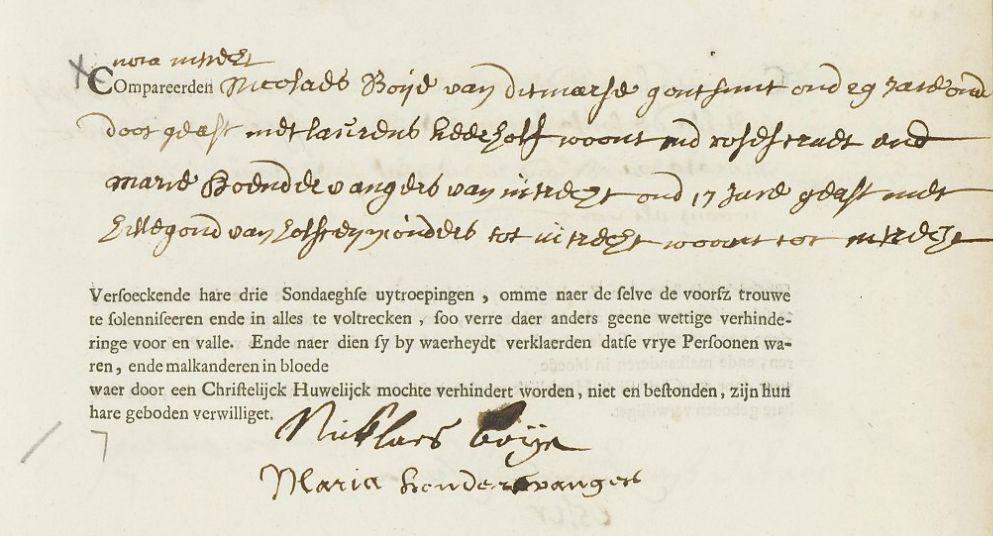 nota utrecht
Compareerden Nicolaes Boije van ditmarse goutsmit oud 29 Jare oud
doot geast met laurens keerholf woont ind rosestraet end
Marie hoendervangers van utrecht oud 17 Jare geast met
hillegond van holsteyn ouders tot utrecht woont tot utrecht
Versoeckende hare drie Sondaeghse uytroepingen , omme naer de selve de voorsz trouwe
te solenniseeren ende in alles te voltrecken , soo verre daer anders geene wettige verhinde-
ringe voor en valle. Ende naer dien sy by waerheydt verklaerden datse vrye Persoonen wa-
ren , ende malkanderen in bloede
waer door een Christelijck Huwelijck mochte verhindert worden , niet en bestonden , zijn hun
hare geboden verwilliget.
Nicklaes boije
Maria hoendervangers